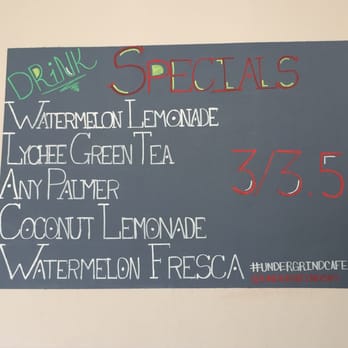 DRINK SPECIALS
WATERMELON LEMONADE
LYCHEE GREEN TEA
ANY PALMER
COCONUT LEMONADE
WATERMELON FRESCA
3/3.5
#UNDERGRINDCAFE